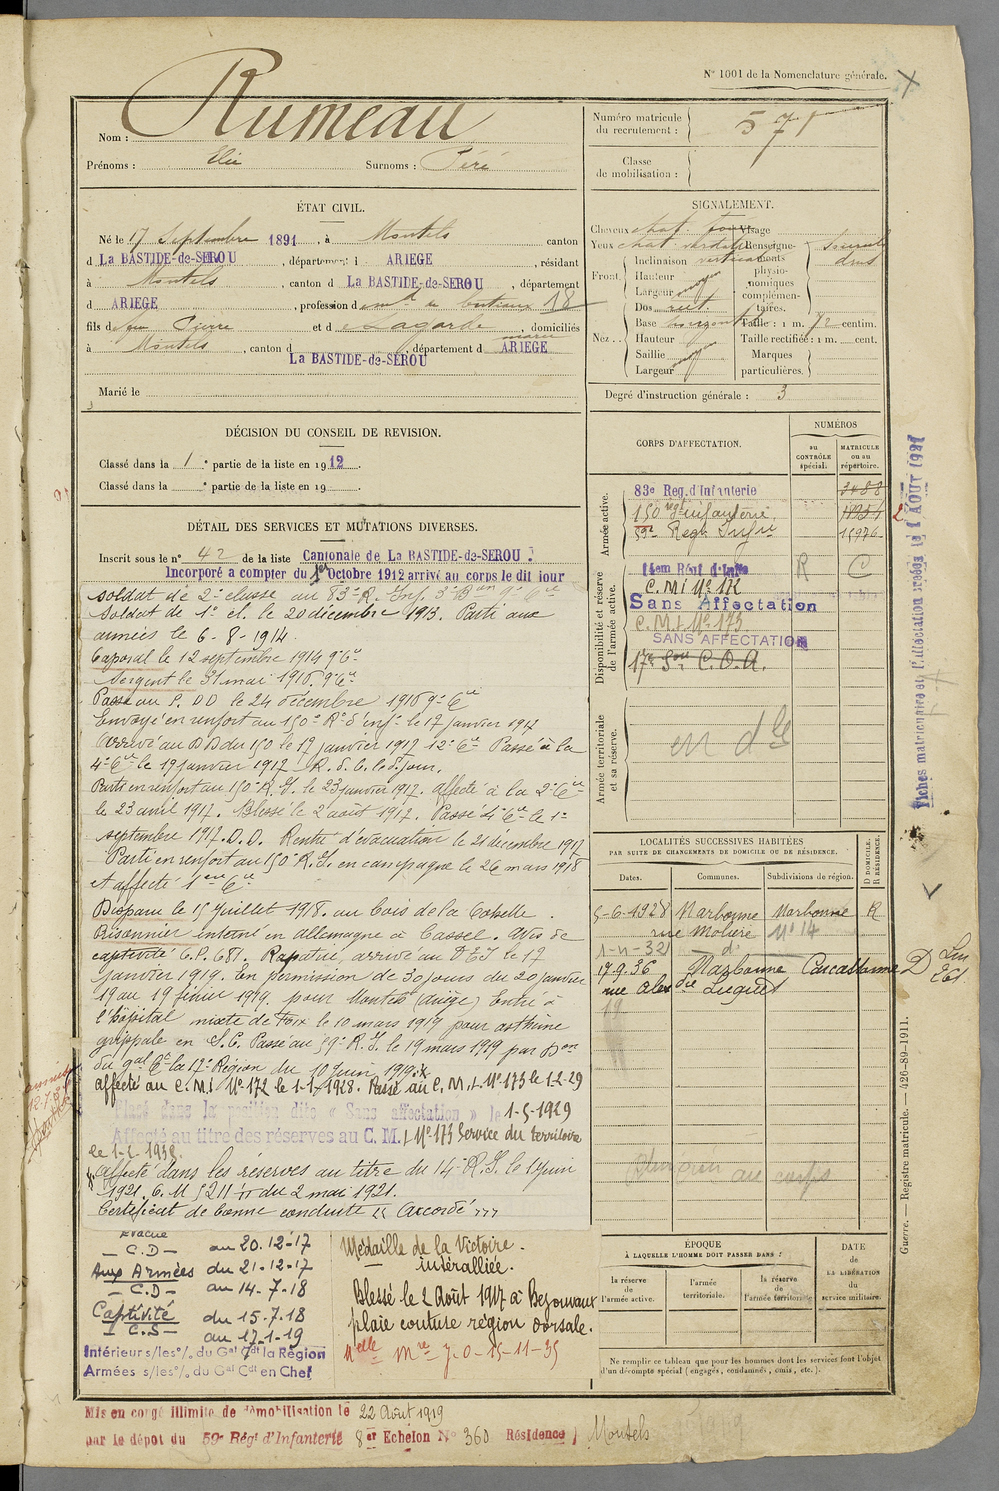 N° 1001 de la Nomenclature générale.
Nom : Rumeau
Prénoms : Elie Surnoms : Péré
Numéro matricule du recrutement : 571
Classe de mobilisation :
ÉTAT CIVIL.
Né le 17 Septembre 1891, à Montels canton
d La BASTIDE-de-SEROU, département d ARIEGE, résidant
à Montels, canton d La BASTIDE-de-SEROU, département
d ARIEGE, profession d md de bestiaux 18
fils de feu Pierre et de Lagarde, domiciliés
à Montels, canton d La BASTIDE-de-SEROU, département d ARIEGE
Marié le
SIGNALEMENT.
Cheveux chat.
Yeux chat
Visage
Renseignements physionomiques complémentaires.
Front.
Inclinaison verticale
Hauteur moyen
Largeur
Nez.
Dos rect
Base horizont
Hauteur moyen
Saillie
Largeur
Taille : 1 m. 72 centim.
Taille rectifiée : 1 m. cent.
Marques particulières.
Degré d'instruction générale : 3
DÉCISION DU CONSEIL DE REVISION.
Classé dans la 1e partie de la liste en 1912.
Classé dans la e partie de la liste en 19 .
DÉTAIL DES SERVICES ET MUTATIONS DIVERSES.
Inscrit sous le n° 42 de la liste Cantonale de La BASTIDE-de-SEROU.
Incorporé a compter du 1er Octobre 1912 arrivé au corps le dit jour
soldat de 2e classe au 83e R. Inf. 3e Bon 9e Cie
Soldat de 1e cl. le 20 décembre 1913. Parti aux
armées le 6-8-1914.
Caporal le 12 septembre 1914 9e Cie
Sergent le 31 mai 1916. 9e Cie
Passé au P. DD le 24 décembre 1916 9e Cie
Envoyé en renfort au 150e R. d'Inf. le 17 janvier 1917
Arrivé au DD du 150 le 17 janvier 1917 12e Cie Passé à la
4e Cie le 19 janvier 1917 R. d. C. le d. jour.
Parti en renfort au 150e R. I. le 23 janvier 1917. affecté à la 2e Cie
le 23 avril 1917. Blessé le 2 août 1917. Passé 4e Cie le 1er
septembre 1917. D.D. Rentré d'évacuation le 21 décembre 1917
Parti en renfort au 150e R.I. en campagne le 26 mars 1918
et affecté 1ere Cie
Disparu le 15 Juillet 1918. au bois de la Cohette.
Prisonnier interné en Allemagne à Cassel. Avis de
captivité C.P. 681. Rapatrié, arrivé au DEI le 17
janvier 1919. En permission de 30 jours du 20 janvier
19 au 19 février 1919. pour Montels (Ariège) Entré à
l'hôpital mixte de Foix le 10 mars 1919 pour asthme
grippale en S.C. Passé au 59e R.I. le 19 mars 1919 par Don
du gal Ct la 17e Région du 10 Juin 1919.
affecté au C.M.I. N° 172 le 1-1-1928. Passé au C.M.I. N° 173 le 1-2-29
Placé dans la position dite « Sans affectation » le 1-5-1929
Affecté au titre des réserves au C.M.I N° 173 Service du territoire
affecté dans les réserves au titre du 14e R.I. le 1 juin
1921. C. M 5211 du 2 mai 1921.
Certificat de bonne conduite "Accordé"
Evacué
— C.D — au 20.12-17
Aux Armées du 21-12-17
— C.D — au 14-7-18
Captivité du 15-7-18
— C.S — au 17-1-19
Intérieur s/les o/. du Gal Cdt la Région
Armées s/les o/. du Gal Cdt en Chef
Médaille de la Victoire.
interalliée.
Blessé le 2 Août 1917 à Bezonvaux
plaie couture région dorsale.
Mlle Mre J.O-15-11-35
CORPS D'AFFECTATION.
NUMÉROS
au CONTRÔLE spécial.
MATRICULE ou au répertoire.
Armée active.
83e Reg. d'Infanterie 3488
150 regt Infanterie
59e Regt Infrie 15976
Disponibilité et réserve de l'armée active.
14em Régt d'Infie R C
C.M.I N° 172
Sans Affectation
C.M.I. N° 173
SANS AFFECTATION
17e Son C.O.A.
Armée territoriale et sa réserve.
en dté
LOCALITÉS SUCCESSIVES HABITÉES
PAR SUITE DE CHANGEMENTS DE DOMICILE OU DE RÉSIDENCE.
Dates. Communes. Subdivisions de région. D DOMICILE. R RÉSIDENCE.
5-6-1928 Narbonne Narbonne R
rue Moliere N° 14
1-4-32 — d° —
17.9.36 Narbonne Carcassonne D
rue Luquet
ÉPOQUE
À LAQUELLE L'HOMME DOIT PASSER DANS :
la réserve de l'armée active.
l'armée territoriale.
la réserve de l'armée territoriale
DATE de LA LIBÉRATION du service militaire.
Ne remplir ce tableau que pour les hommes dont les services font l'objet
d'un décompte spécial (engagés, condamnés, omis, etc.).
Guerre. — Registre matricule. — 426-89-1911.
Fiches matriculaire et d'affectation créées le 1 AOUT 1921
Mis en congé illimité de démobilisation le 22 Août 1919
par le dépot du 59e Régt d'Infanterie 8er Echelon N° 360 Résidence Montels